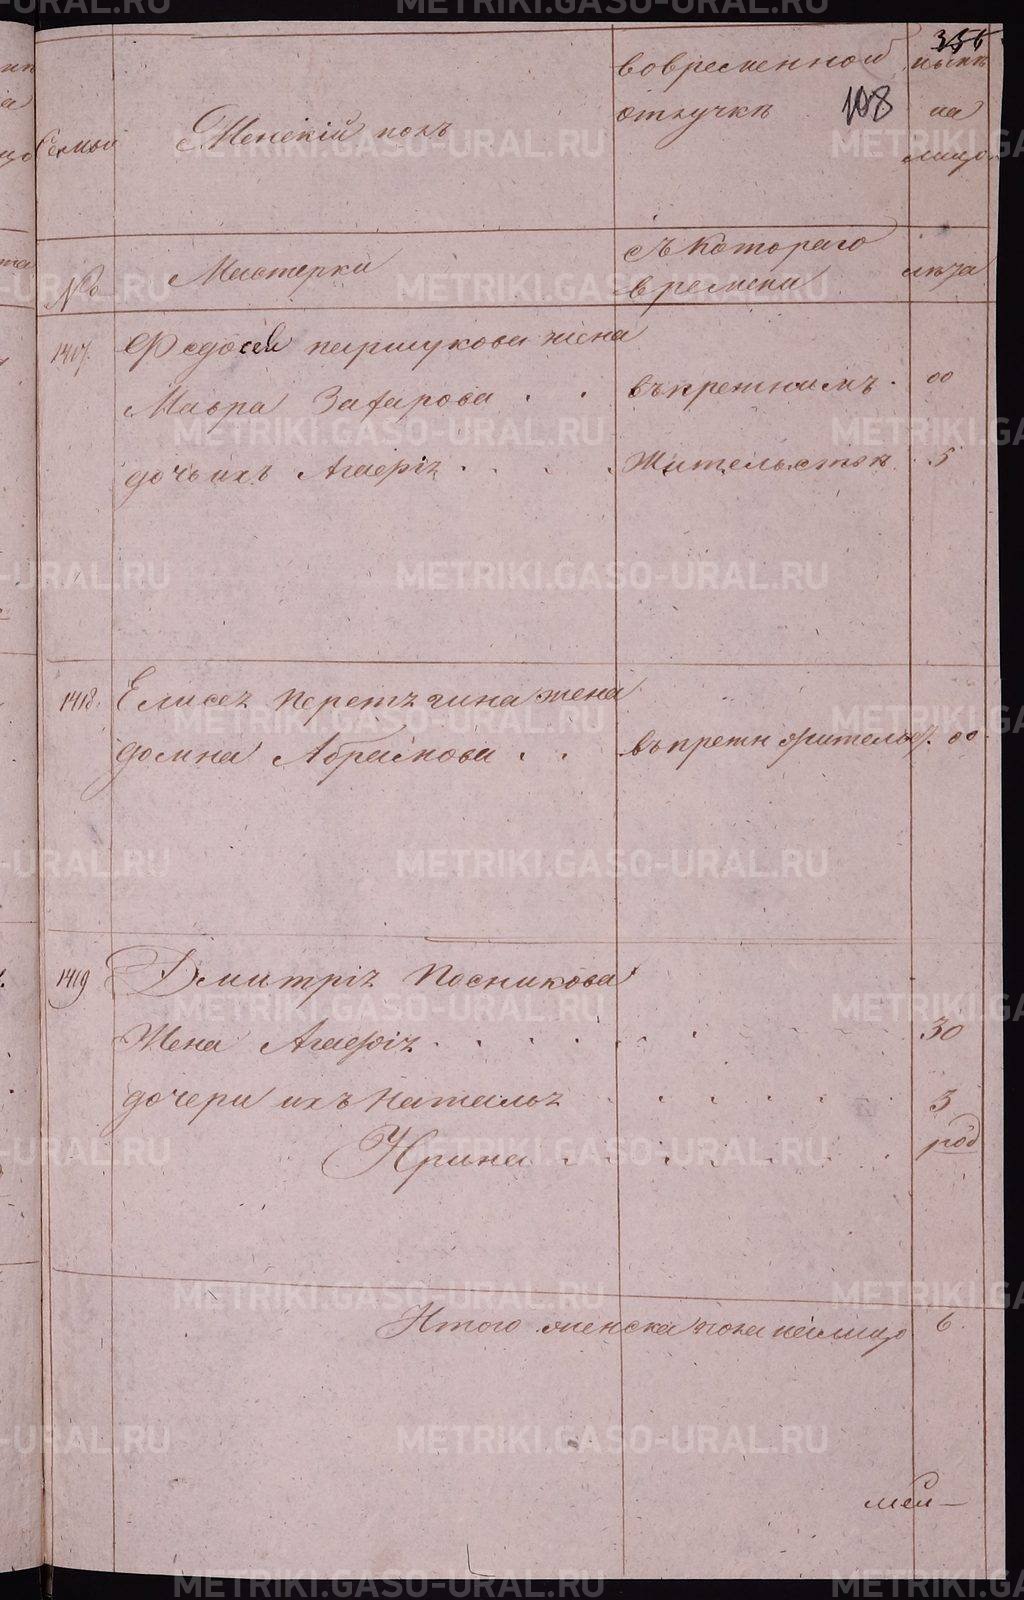 356
108
Семьи
Женскій полъ
вовременной
отлучкѣ
нынѣ
на
лицо
№
Мастерки
съ котораго
времени
лѣта
1417.
Федосея паршукова жена
Мавра Захарова . . въ прежнимъ . 00
дочь ихъ Агафія . . . . Жительствѣ . 5
1418.
Елисея перетягина жена
домна Абрамова . . въ прежн жительст. 00
1419
Дмитрія Посникова
Жена Агафія . . . . . . . 30
дочери ихъ наталья . . . . . 3
Ирина . . . . . . . род
Итого женска пола налицо 6
METRIKI.GASO-URAL.RU